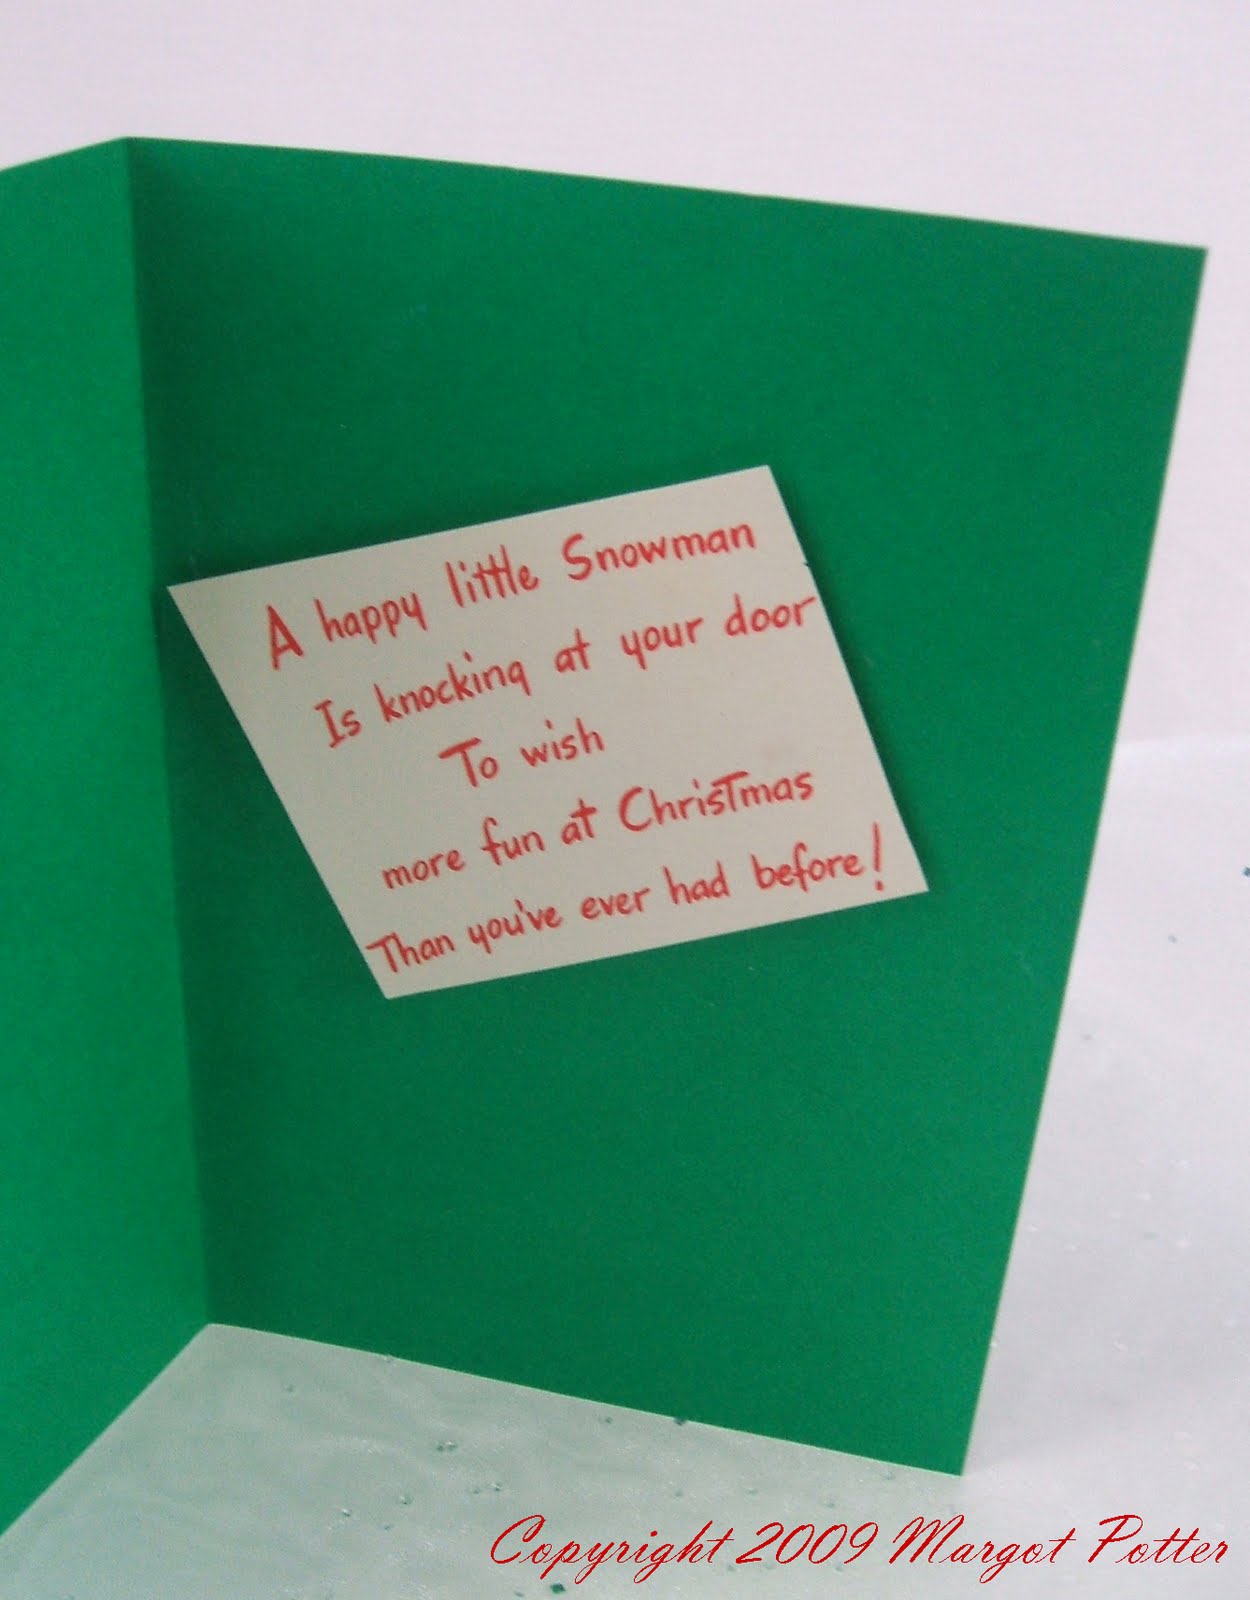 A happy little Snowman
Is knocking at your door
To wish
more fun at Christmas
Than you've ever had before!
Copyright 2009 Margot Potter